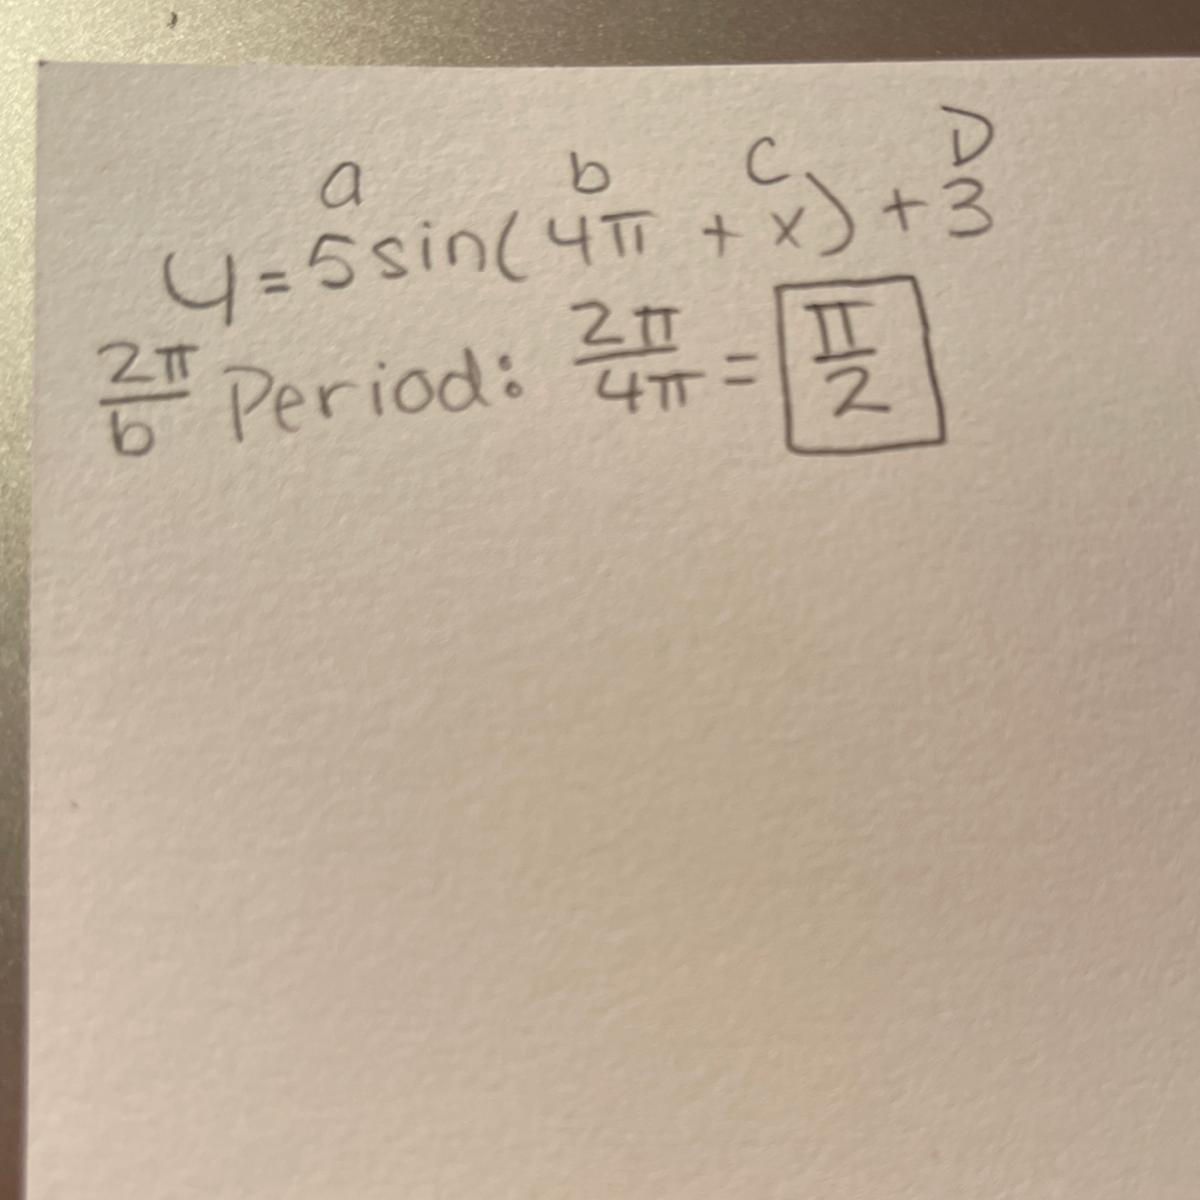 a b C D
y = 5sin(4π + x) + 3
2π/b Period: 2π/4π = π/2